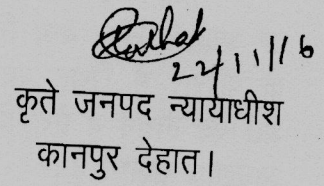 22/11/16
कृते जनपद न्यायाधीश
कानपुर देहात।